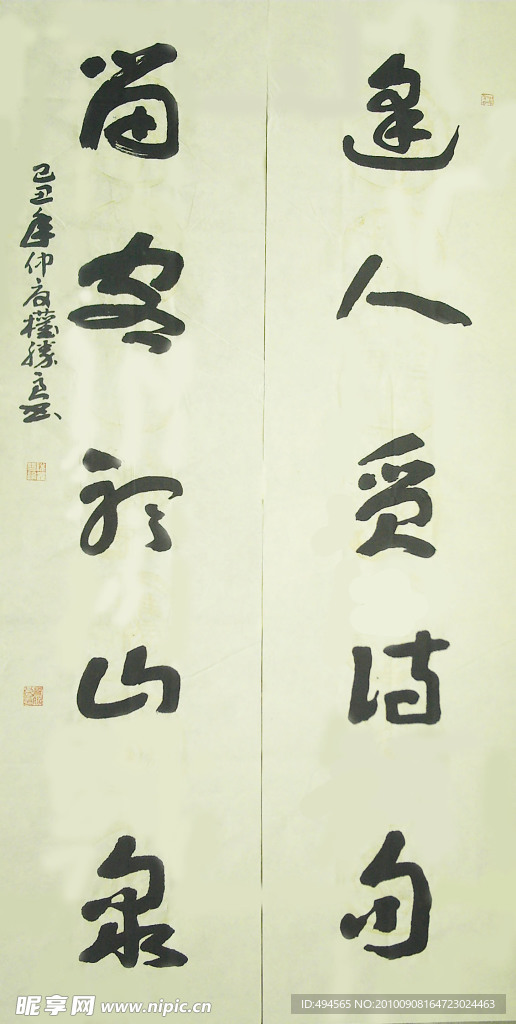 逢人觅诗句
留客聽山泉
己丑年仲夏權勝
昵享网 www.nipic.cn
ID:494565 NO:20100908164723024463